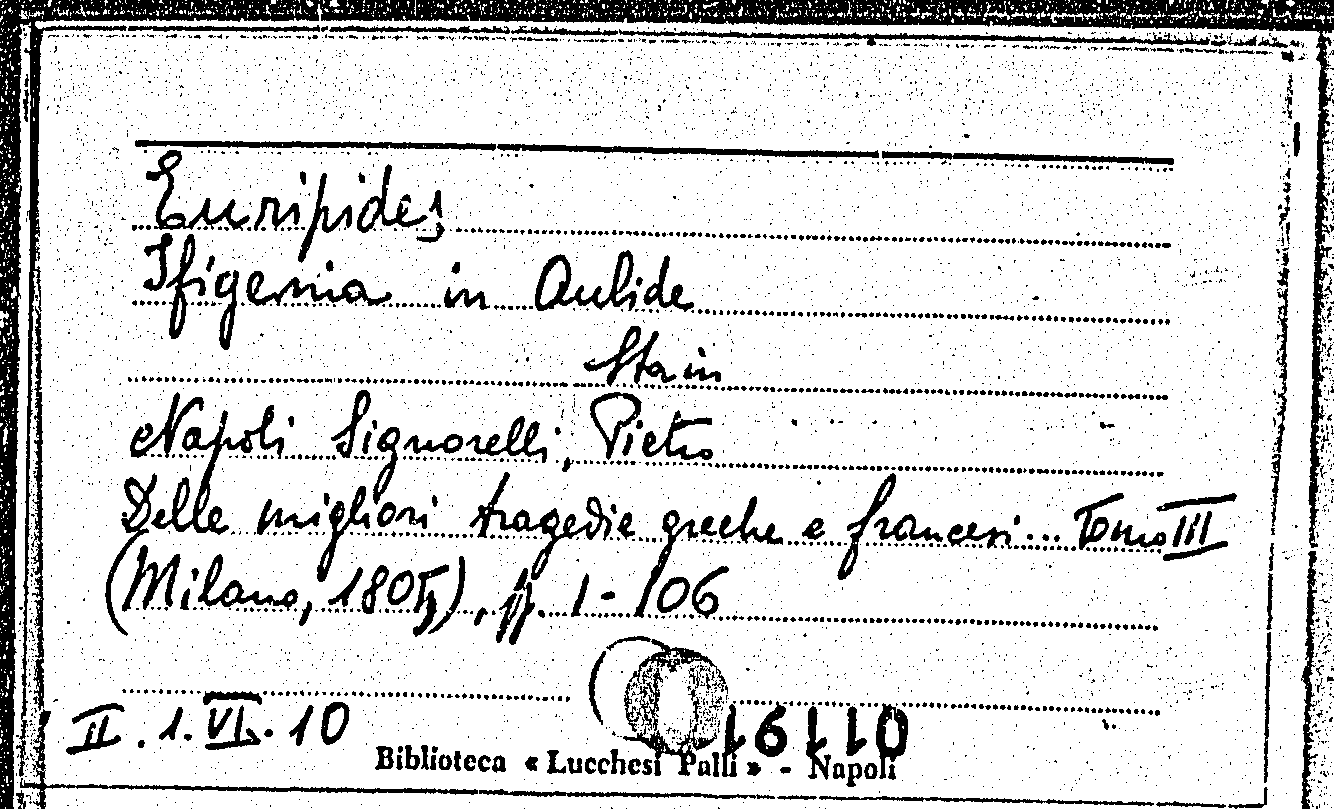 Euripides
Ifigenia in Aulide
Sta in
Napoli Signorelli, Pietro
Delle migliori tragedie greche e francesi... Tomo III
(Milano, 1805), pp. 1-106
II. 1. VI. 10
Biblioteca « Lucchesi Palli » - Napoli